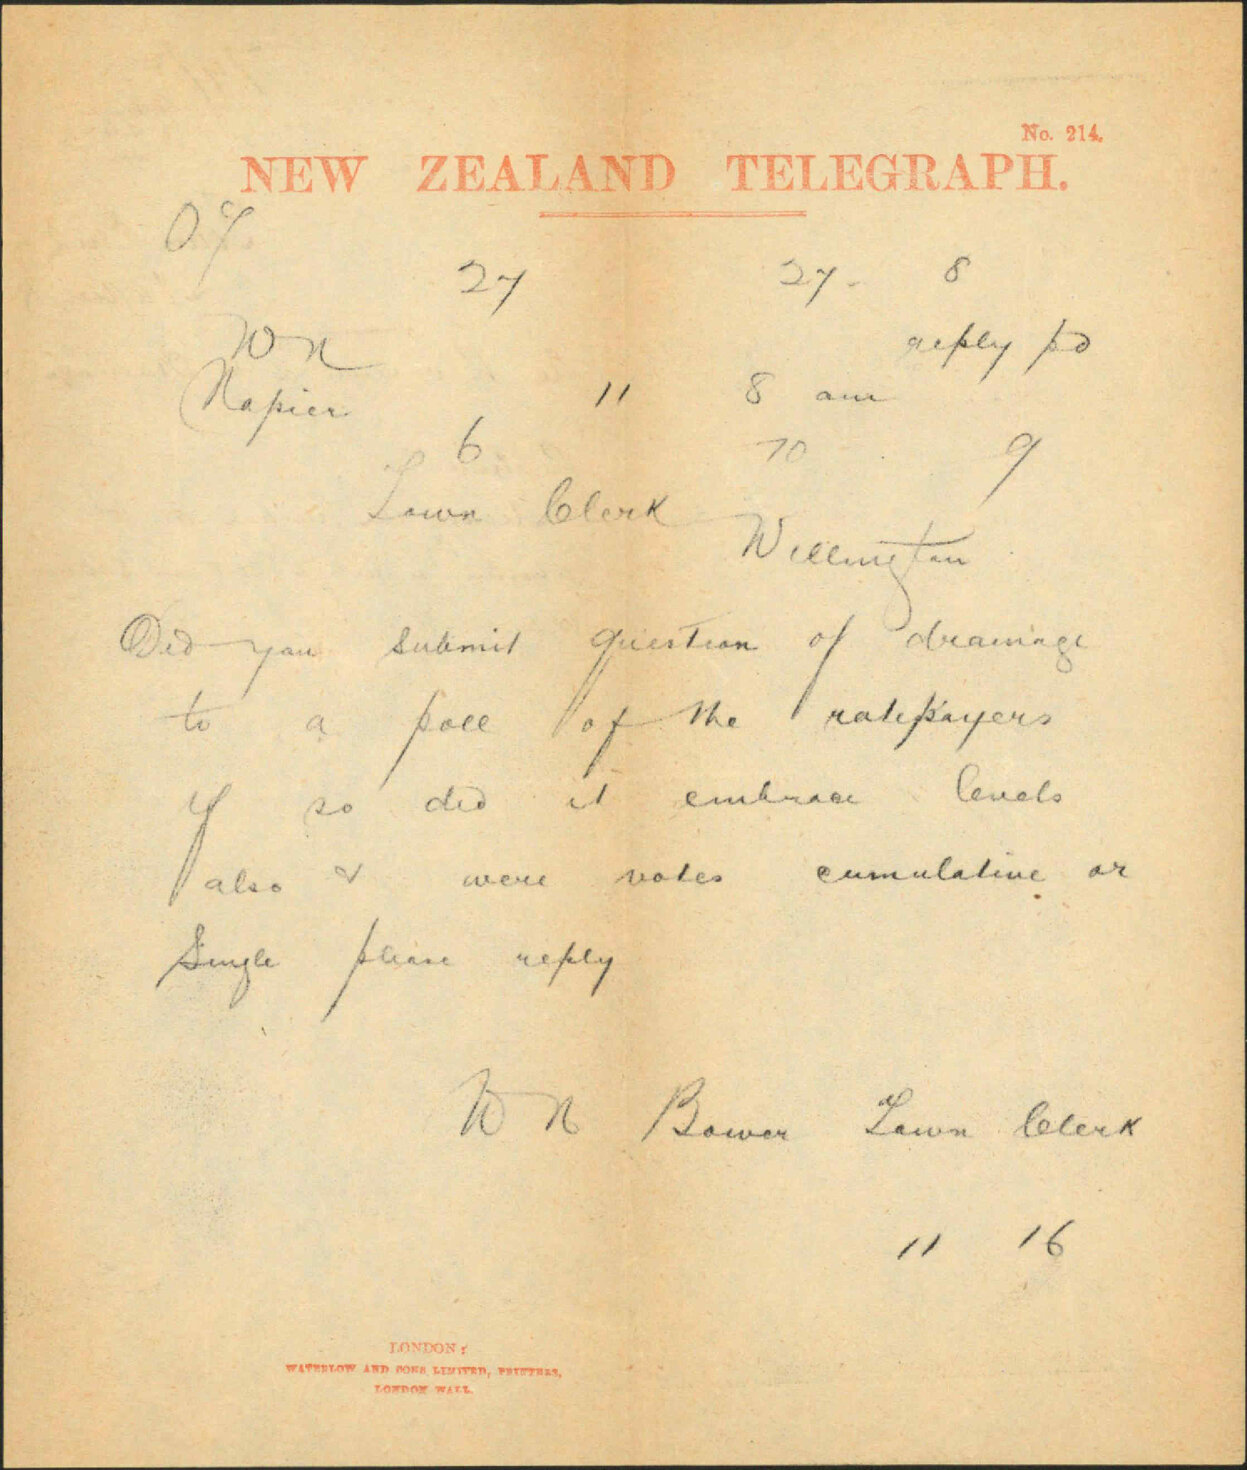 No. 214.
NEW ZEALAND TELEGRAPH.
27 27 - 8
WN reply pd
Napier 11 8 am
6 70 9
Town Clerk
Wellington
Did you submit question of drainage
to a poll of the ratepayers
If so did it embrace levels
also & were votes cumulative or
Single please reply
W N Bower Town Clerk
11 16
LONDON:
WATERLOW AND SONS LIMITED, PRINTERS,
LONDON WALL.